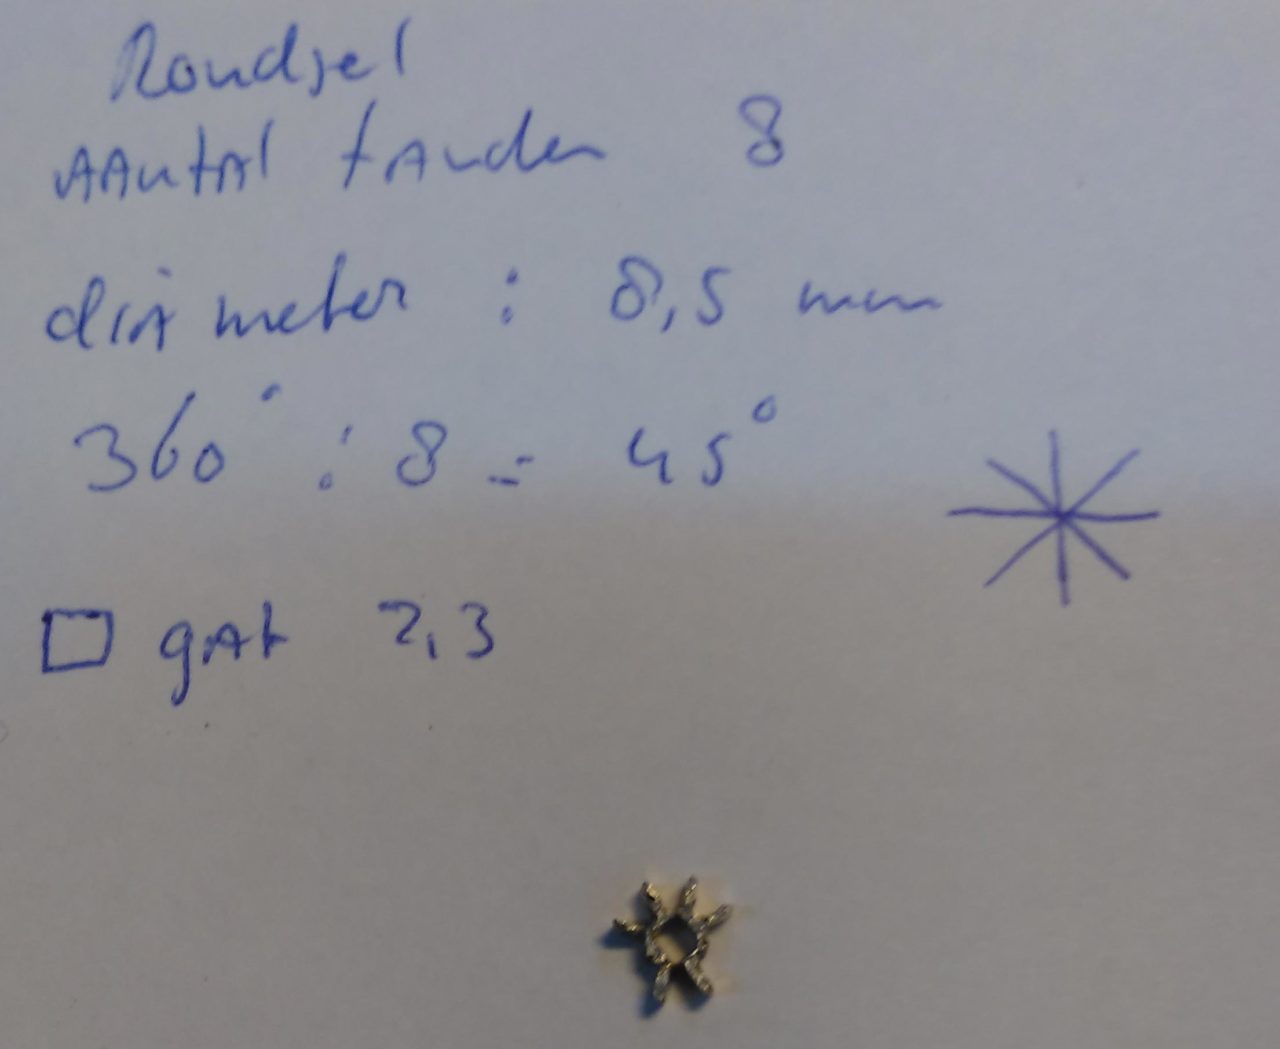 Rondsel
AAntAl tAnden 8
diAmeter : 8,5 mm
360° : 8 = 45°
gAt 2,3